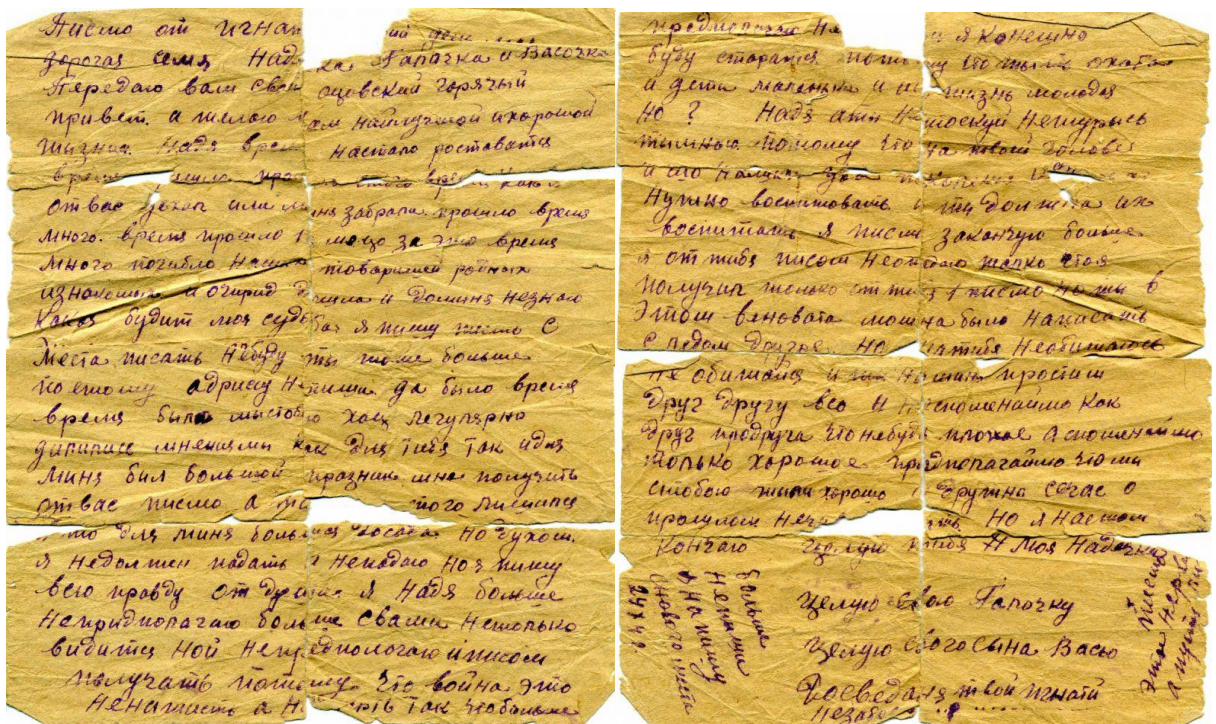 Писмо от игна
дорогая семя Над Гапачка и Васочка
Передаю вам сво оцовский горячий
привет. а желаю вам наилучшой ихорошой
жизни. Надя врем настало роставатся
время
от вас уехал или миня забрали. прошло время
много. время прошло 1 месяцо за это время
много погибло наши товаришей родных
изнакомых и очиридь дошла и доминя незнаю
какая будит моя судьбая я пишу писмо с
места писать небуду ты тоже больше
поетому адрису непиши да было время
время было мыстобою хоц регулярно
дилилис мненями как для тибя так идля
миня был большой празник мне получить
отвас писмо а того лишился
то для миня большая досада но духом
я недолжен падать и непадаю ноя пишу
всю правду от души я Надя больше
непридполагаю больше свами нетолько
видится ной непредпологаю иписом
получать потому что война это
ненависть а н ть так чтобольше
предполагаю не я конешно
буду старатся пото му что охота
и дети маленьки и жизнь молодая
но ? Надя аты нетоскуй нежурысь
тымною потому что на твоей голове
и
нужно воспитовать и ты должна их
воспитать я писмо закончую больше
я от тибя писом неожидаю толко стоя
получил только от тибя 1 писмо но ты в
Этом веновата можна было написать
следом другое. но натибя необижаюсь
не обижайся и простим
друг другу всо и неспоменаймо как
друг продруга чтонебудь плохое а споменаймо
только хорошое придполагаймо что мы
стобою жили хорошо и дружна сечас о
прошлом нече ть. Но я наетом
кончаю целую тибя Н моя Надечка
целую свою Гапочку
целую свогосына Васю
Досведаня твой игнатй
незабо
больше
непиши
я напишу
снового места
24 X 42
Писмо
это